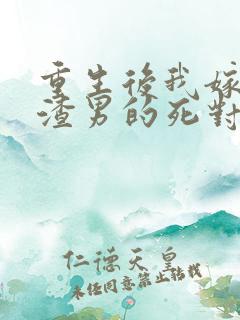 重生後我嫁
渣男的死對
仁德天皇
未經同意禁止轉載